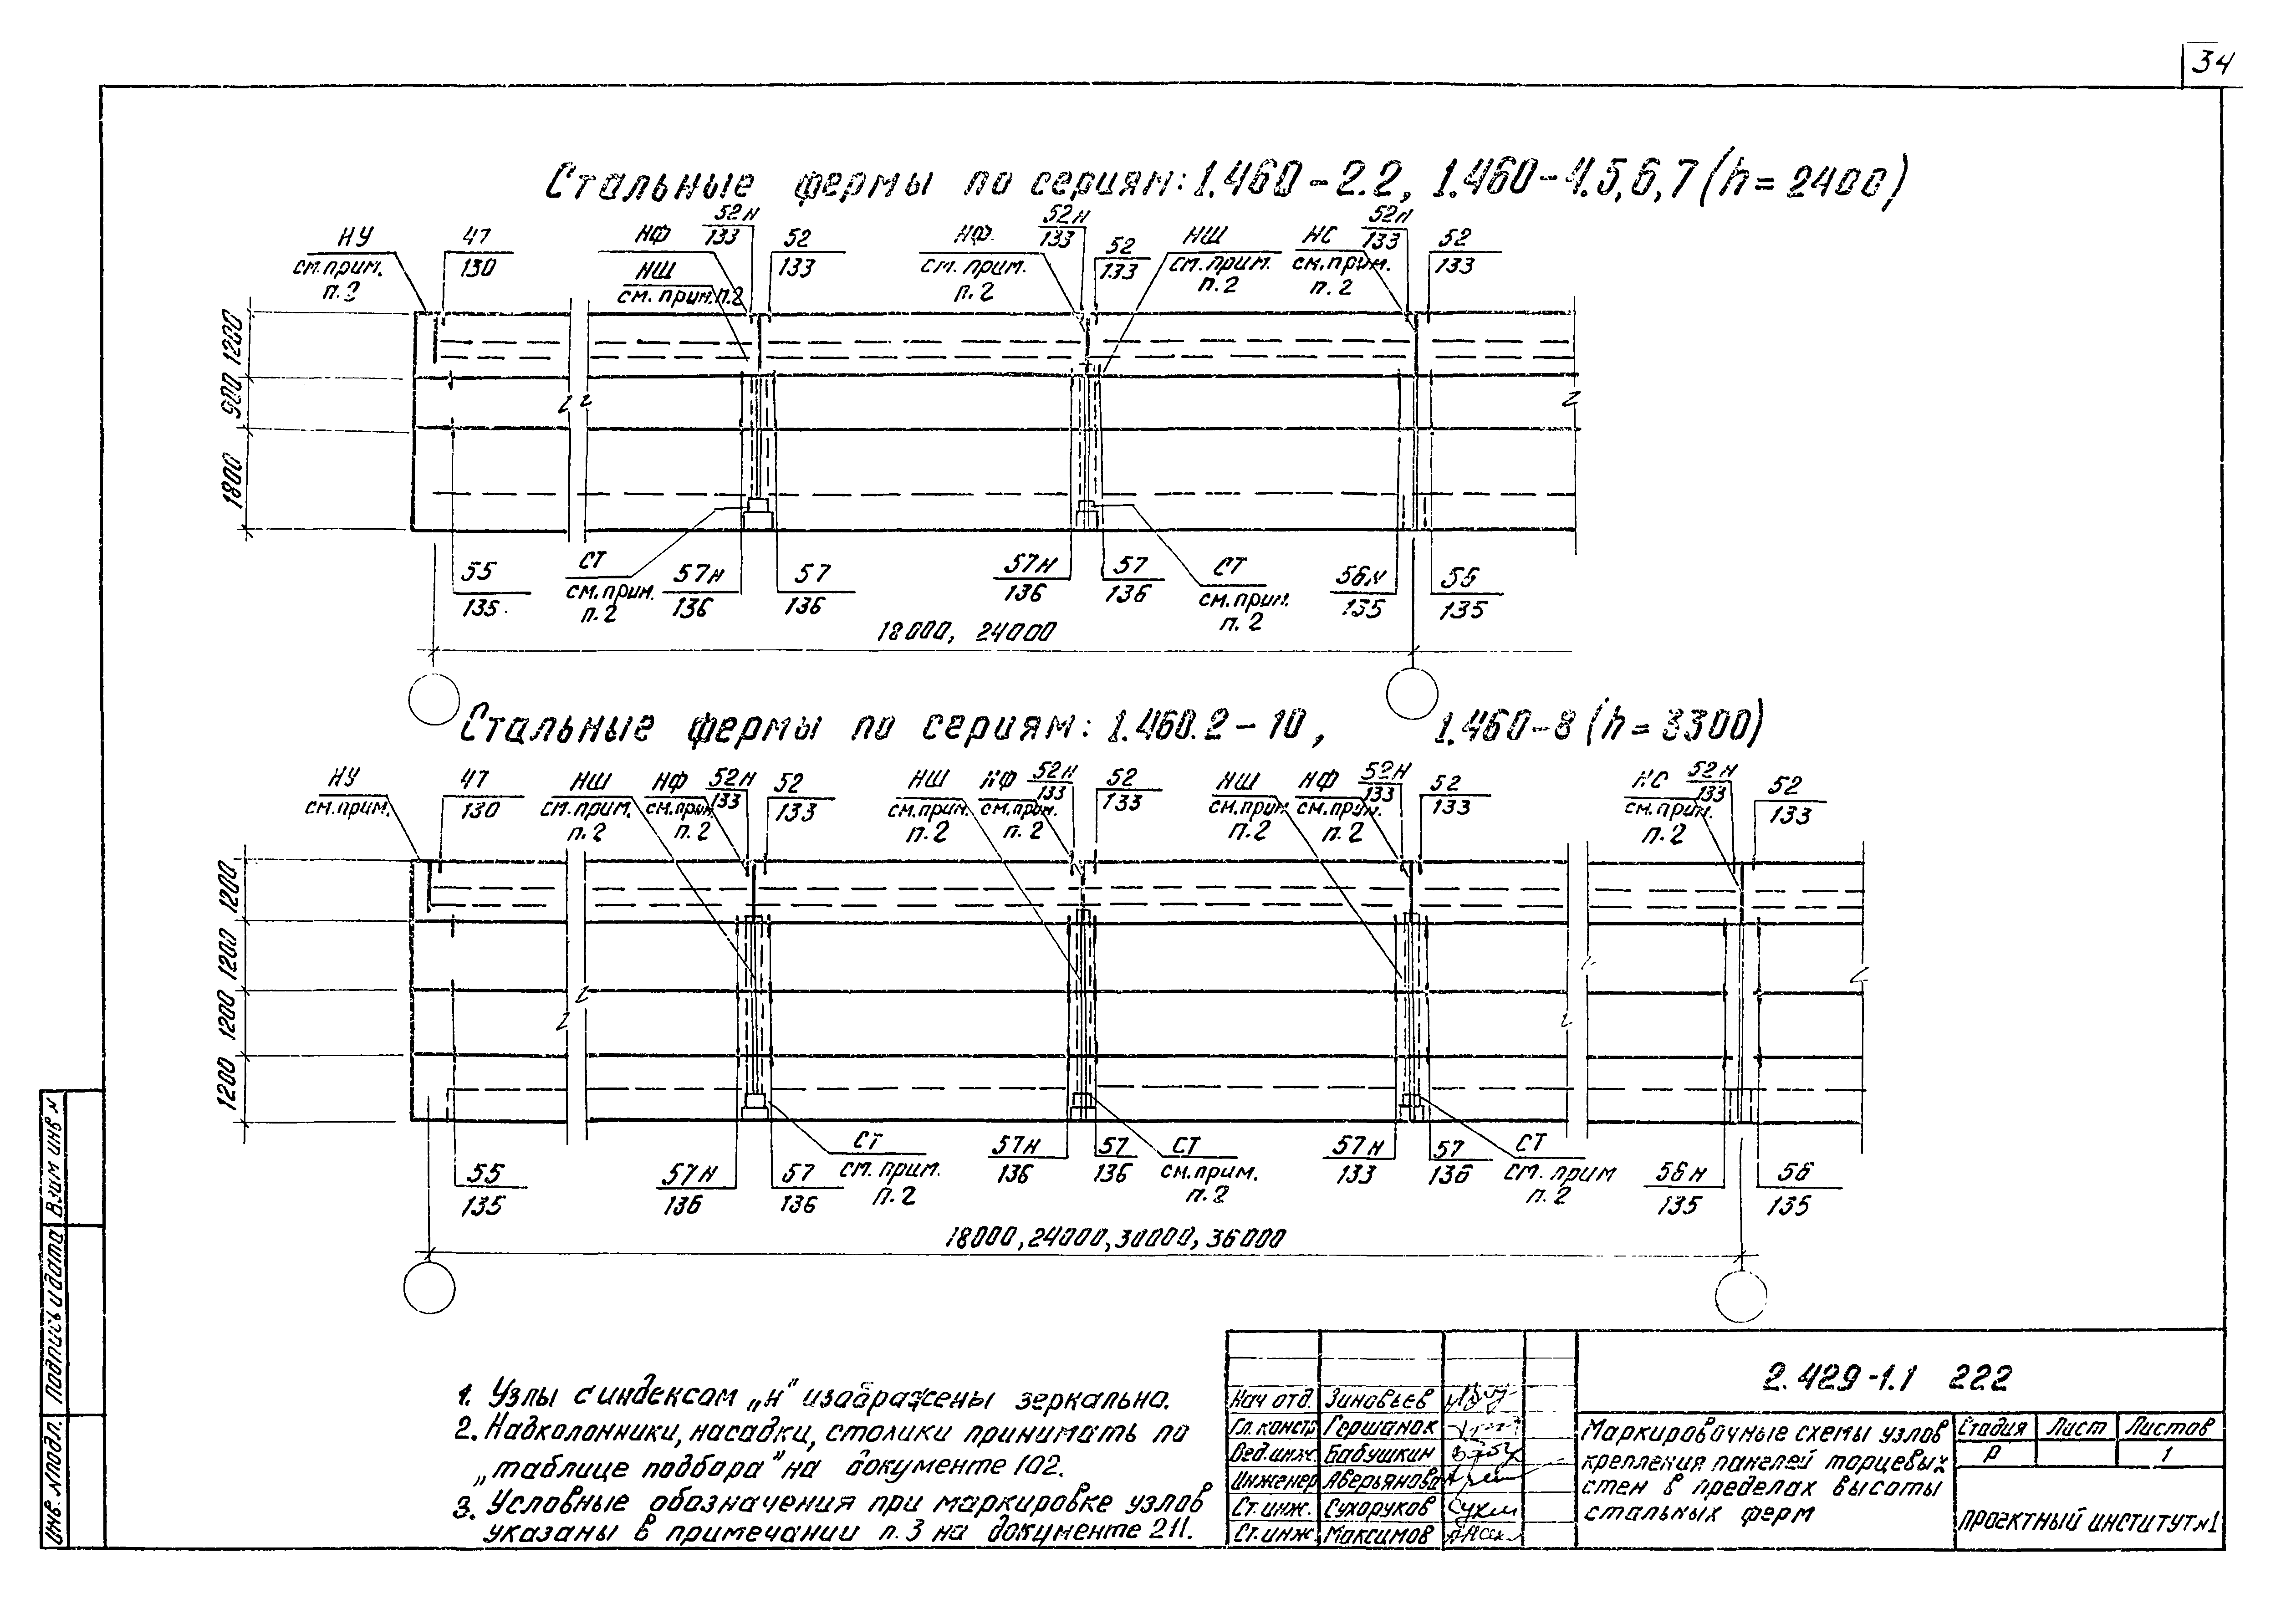 34
Стальные фермы по сериям: 1.460-2.2, 1.460-4.5,6,7 (h=2400)
НУ
см. прим.
п.2
47
130
НФ
НШ
см. прим. п.2
52н
133
52
133
НФ
см. прим.
п.2
52н
133
52
133
НШ
см. прим.
п.2
НС
см. прим.
п.2
52н
133
52
133
1200
900
1800
55
135
СТ
см. прим.
п.2
57н
136
57
136
57н
136
57
136
СТ
см. прим.
п.2
56н
135
56
135
18000, 24000
Стальные фермы по сериям: 1.460.2-10, 1.460-8 (h=3300)
НУ
см. прим.
47
130
НШ
см. прим.
п.2
НФ
см. прим.
п.2
52н
133
52
133
НШ
см. прим.
п.2
НФ
см. прим.
п.2
52н
133
52
133
НШ
см. прим.
п.2
НФ
см. прим.
п.2
52н
133
52
133
НС
см. прим.
п.2
52н
133
52
133
1200
1200
1200
1200
55
135
57н
136
57
136
СТ
см. прим.
п.2
57н
136
57
136
СТ
см. прим.
п.2
57н
133
57
136
СТ
см. прим
п.2
56н
135
56
135
18000, 24000, 30000, 36000
1. Узлы с индексом „н" изображены зеркально.
2. Надколонники, насадки, столики принимать по
„таблице подбора" на документе 102.
3. Условные обозначения при маркировке узлов
указаны в примечании п.3 на документе 211.
Нач отд. Зиновьев
Гл. констр Гершанок
Вед. инж. Бабушкин
Инженер Аверьянова
Ст. инж. Сухоруков
Ст. инж. Максимов
2.429-1.1 222
Маркировочные схемы узлов
крепления панелей торцевых
стен в пределах высоты
стальных ферм
Стадия Лист Листов
Р 1
Проектный институт №1
Взам инв №
Подпись и дата
Инв. № подл.